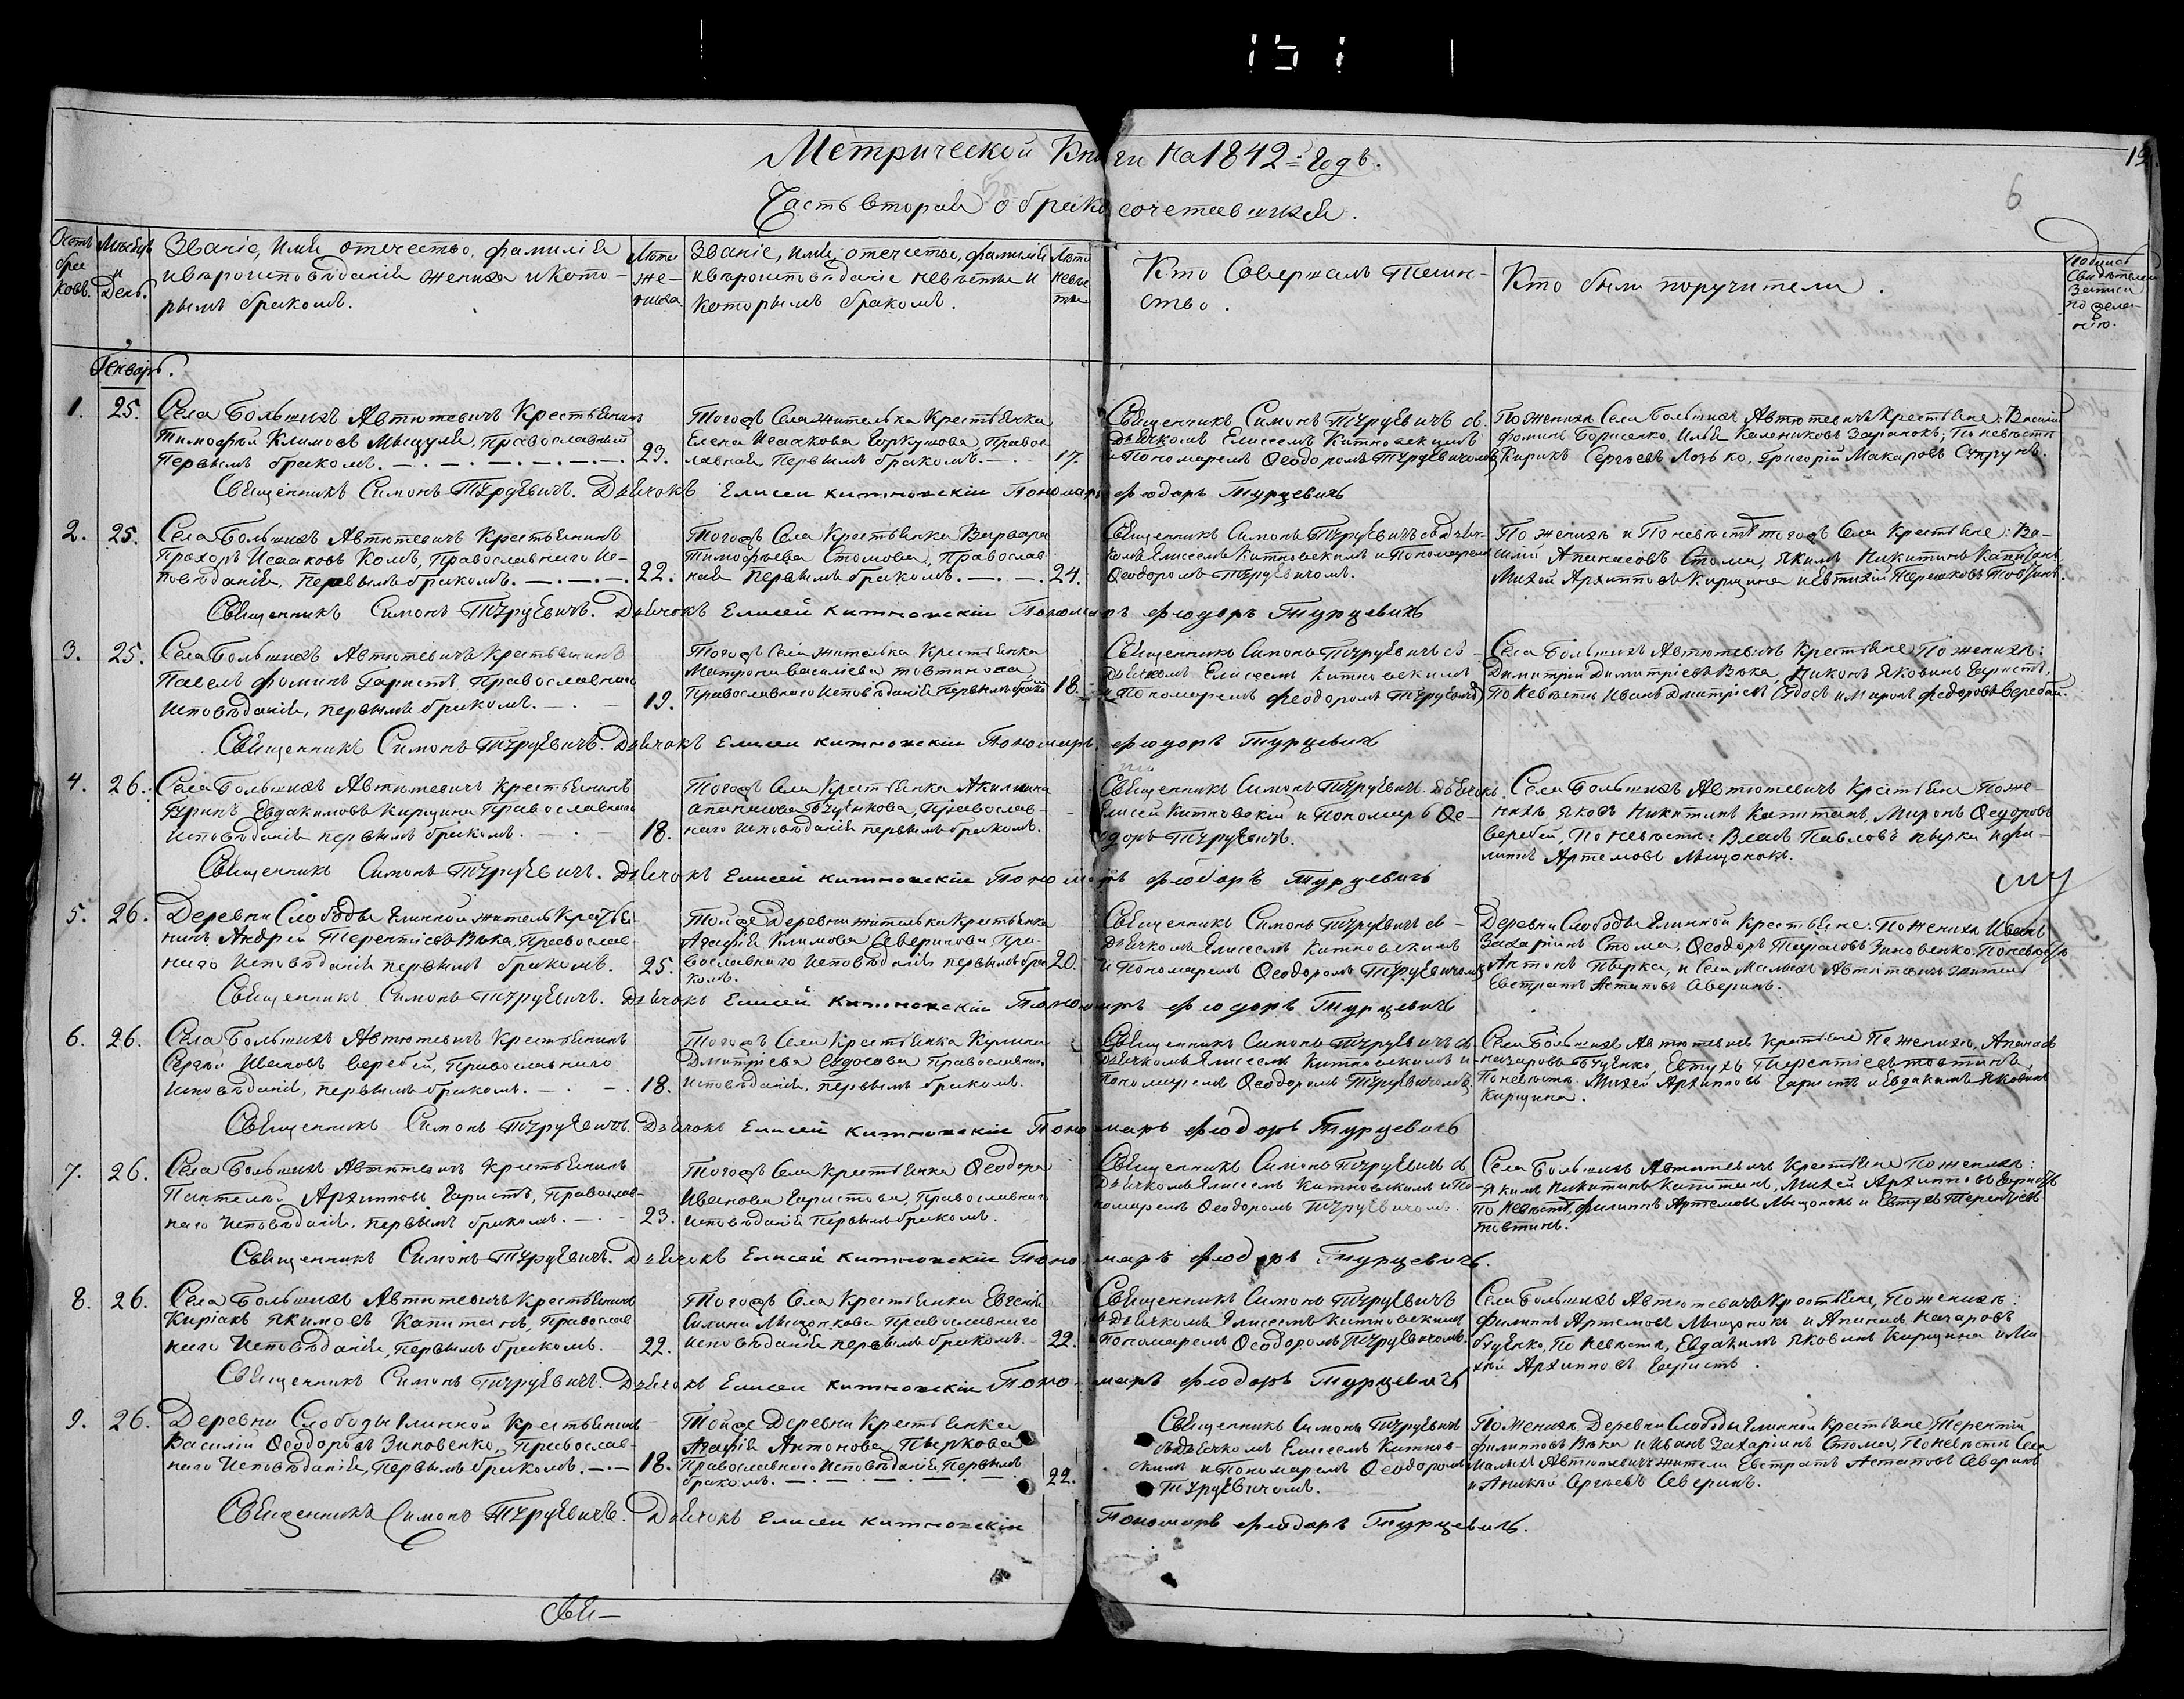 151
Метрической Книги на 1842й Годъ.
12.
6
Часть вторая о бракосочетавшихся.
Счетъ браковъ.
Мѣсяцъ и День.
Званіе, Имя отечество, фамилія
и вѣроисповѣданія жениха и кото-
рымъ бракомъ.
Лѣта жениха
Званіе, имя, отечество, фамилія
и вѣроисповѣданіе невѣсты и
которымъ бракомъ.
Лѣта невѣсты
Кто Совершалъ Таин-
ство.
Кто были поручители.
Подпись
Свидѣтелей
Записи
по жела-
нію.
Генварь.
1. 25.
Села Большихъ Автютевичъ Крестьянинъ
Тимофей Климовъ Мицула, Православный
Первымъ бракомъ. 23.
Тогожъ Села жителька Крестьянка
Елена Исаакова Коркушова, Правос-
лавная Первымъ бракомъ. 17.
Священникъ Симонъ Турцевичъ съ
Дьячкомъ Елисеемъ Китновскимъ
и Пономаремъ Ѳеодоромъ Турцевичомъ
По Женихѣ Села Большихъ Автютевичъ Крестьяне: Василій
Фоминъ Борисенко, Илья Калениковъ; По невѣстѣ
Кирикъ Сергѣевъ Лозько, Григорій Макаровъ Супрунъ.
Священникъ Симонъ Турцевичъ. Дьячокъ Елисей Китновскій Пономарь Феодоръ Турцевичъ
2. 25.
Села Большихъ Автютевичъ Крестьянинъ
Прохоръ Исааковъ Комъ, Православнаго Ис-
повѣданія, Первымъ бракомъ. 22.
Тогожъ Села Крестьянка Варвара
Тимофѣева Стомова, Православ-
ная Первымъ бракомъ. 24.
Священникъ Симонъ Турцевичъ съ Дьяч-
комъ Елисеемъ Китновскимъ и Пономаремъ
Ѳеодоромъ Турцевичомъ.
По женихѣ и По невѣстѣ тогожъ Села Крестьяне: Ва-
силій Апанасовъ Стома, Якимъ Никитинъ Капитанъ,
Михей Архиповъ Кирщина и Евтихій
Священникъ Симонъ Турцевичъ. Дьячокъ Елисей Китновскій Пономарь Феодоръ Турцевичъ
3. 25.
Села Большихъ Автютевичъ Крестьянинъ
Павелъ Фоминъ Гаристъ, Православнаго
Исповѣданія, первымъ бракомъ. 19.
Тогожъ Села жителька Крестьянка
Матрона Василіева Товтинова
Православнаго Исповѣданія Первымъ бракомъ 18.
Священникъ Симонъ Турцевичъ съ
Дьячкомъ Елисеемъ Китновскимъ
и Пономаремъ Феодоромъ Турцевичомъ
Села Большихъ Автютевичъ Крестьяне По женихѣ:
Димитрій Димитріевъ Вака, Никонъ Яковинъ Гаристъ,
По Невѣстѣ, Иванъ Дмитріевъ и Миронъ Федоровъ Веребей.
Священникъ Симонъ Турцевичъ. Дьячокъ Елисей Китновскій Пономарь Феодоръ Турцевичъ
4. 26.
Села Большихъ Автютевичъ Крестьянинъ
Гуринъ Евдакимовъ Кирщина Православнаго
Исповѣданія первымъ бракомъ. 18.
Тогожъ Села Крестьянка Акилина
Апанасова Буценкова, Православ-
наго исповѣданія первымъ бракомъ.
Священникъ Симонъ Турцевичъ Дьячокъ
Елисей Китновскій и Пономарь Ѳе-
одоръ Турцевичъ.
Села Большихъ Автютевичъ Крестьяне По же-
нихѣ, Яковъ Никитинъ Капитанъ, Миронъ Ѳедоровъ
Веребей, По невѣстѣ: Власъ Павловъ Пырка и Фи-
липъ Артемовъ Мицонокъ.
Священникъ Симонъ Турцевичъ. Дьячокъ Елисей Китновскій Пономарь Феодоръ Турцевичъ
5. 26.
Деревни Слободы Глинной житель Крестья-
нинъ Андрей Терентіевъ Вака, Православ-
наго Исповѣданія первымъ бракомъ. 25.
Тойже Деревни жителька Крестьянка
Агафія Климова Северинова, Пра-
вославнаго Исповѣданія первымъ бра-
комъ. 20.
Священникъ Симонъ Турцевичъ съ
Дьячкомъ Елисеемъ Китновскимъ
и Пономаремъ Ѳеодоромъ Турцевичомъ
Деревни Слободы Глинной Крестьяне: По Женихѣ Иванъ
Захаріинъ Стома, Ѳеодоръ Тарасовъ Зиновенко, По невѣстѣ
Антонъ Пырка, и Села Малыхъ Автютевичъ житель
Евстратъ Астаповъ Аверинъ.
Священникъ Симонъ Турцевичъ. Дьячокъ Елисей Китновскій Пономарь Феодоръ Турцевичъ
6. 26.
Села Большихъ Автютевичъ Крестьянинъ
Сергѣй Ивановъ Веребей, Православнаго
Исповѣданія, первымъ бракомъ. 18.
Тогожъ Села Крестьянка Кулина
Дмитріева Православнаго
Исповѣданія, первымъ бракомъ.
Священникъ Симонъ Турцевичъ съ
Дьячкомъ Елисеемъ Китновскимъ и
Пономаремъ Ѳеодоромъ Турцевичомъ
Села Большихъ Автютевичъ Крестьяне По Женихѣ, Апанасъ
Назаровъ Буценко, Евтухъ Терентіевъ Товтинъ,
По невѣстѣ. Михей Архиповъ Гаристъ и Евдакимъ Яковинъ
Кирщина.
Священникъ Симонъ Турцевичъ. Дьячокъ Елисей Китновскій Пономарь Феодоръ Турцевичъ
7. 26.
Села Большихъ Автютевичъ Крестьянинъ
Пантелей Архиповъ Гаристъ, Православ-
наго Исповѣданія, первымъ бракомъ. 23.
Тогожъ Села Крестьянка Ѳеодора
Иванова Гаристова, Православнаго
исповѣданія Первымъ бракомъ.
Священникъ Симонъ Турцевичъ съ
Дьячкомъ Елисеемъ Китновскимъ и По-
номаремъ Ѳеодоромъ Турцевичомъ.
Села Большихъ Автютевичъ Крестьяне По женихѣ:
Якимъ Никитинъ Капитанъ, Михей Архиповъ Гаристъ
По Невѣстѣ, Филипъ Артемовъ Мицонокъ и Евтухъ Терентіевъ
Товтинъ.
Священникъ Симонъ Турцевичъ. Дьячокъ Елисей Китновскій Пономарь Феодоръ Турцевичъ.
8. 26.
Села Большихъ Автютевичъ Крестьянинъ
Киріакъ Якимовъ Капитанъ, Православ-
наго Исповѣданія, Первымъ бракомъ. 22.
Тогожъ Села Крестьянка Евгенія
Силина Мицонкова Православнаго
исповѣданія первымъ бракомъ. 22.
Священникъ Симонъ Турцевичъ
съ Дьячкомъ Елисеемъ Китновскимъ
Пономаремъ Ѳеодоромъ Турцевичомъ.
Села Большихъ Автютевичъ Крестьяне, По женихѣ:
Филипъ Артемовъ Мицонокъ и Апанасъ Назаровъ
Буценко, По Невѣстѣ, Евдакимъ Яковинъ Кирщина и Ми-
хей Архиповъ Гаристъ.
Священникъ Симонъ Турцевичъ. Дьячокъ Елисей Китновскій Пономарь Феодоръ Турцевичъ
9. 26.
Деревни Слободы Глинной Крестьянинъ
Василій Ѳеодоровъ Зиновенко, Православ-
наго Исповѣданія, Первымъ бракомъ. 18.
Тойже Деревни Крестьянка
Агафія Антонова Пыркова
Православнаго Исповѣданія, Первымъ
бракомъ. 22.
Священникъ Симонъ Турцевичъ
съ Дьячкомъ Елисеемъ Китнов-
скимъ и Пономаремъ Ѳеодоромъ
Турцевичомъ.
По Женихѣ, Деревни Слободы Глинной Крестьяне, Терентій
Филиповъ Вака и Иванъ Захаріинъ Стома, По невѣстѣ Села
Малыхъ Автютевичъ жители Евстратъ Астаповъ Аверинъ
и Сергѣевъ Аверинъ.
Священникъ Симонъ Турцевичъ. Дьячокъ Елисей Китновскій Пономарь Феодоръ Турцевичъ.